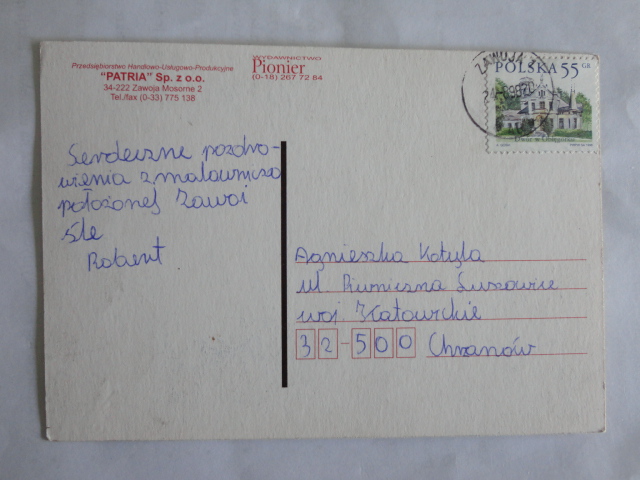 Przedsiębiorstwo Handlowo-Usługowo-Produkcyjne
"PATRIA" Sp. z o.o.
34-222 Zawoja Mosorne 2
Tel./fax (0-33) 775 138
WYDAWNICTWO
Pionier
(0-18) 267 72 84
ZAWOJA
POLSKA 55 GR
Serdeczne pozdro-
wienia z malowniczo
położonej Zawoi
śle
Robert
Agnieszka Kotyla
ul. Piwniczna Luszowice
woj. Katowickie
32-500 Chrzanów